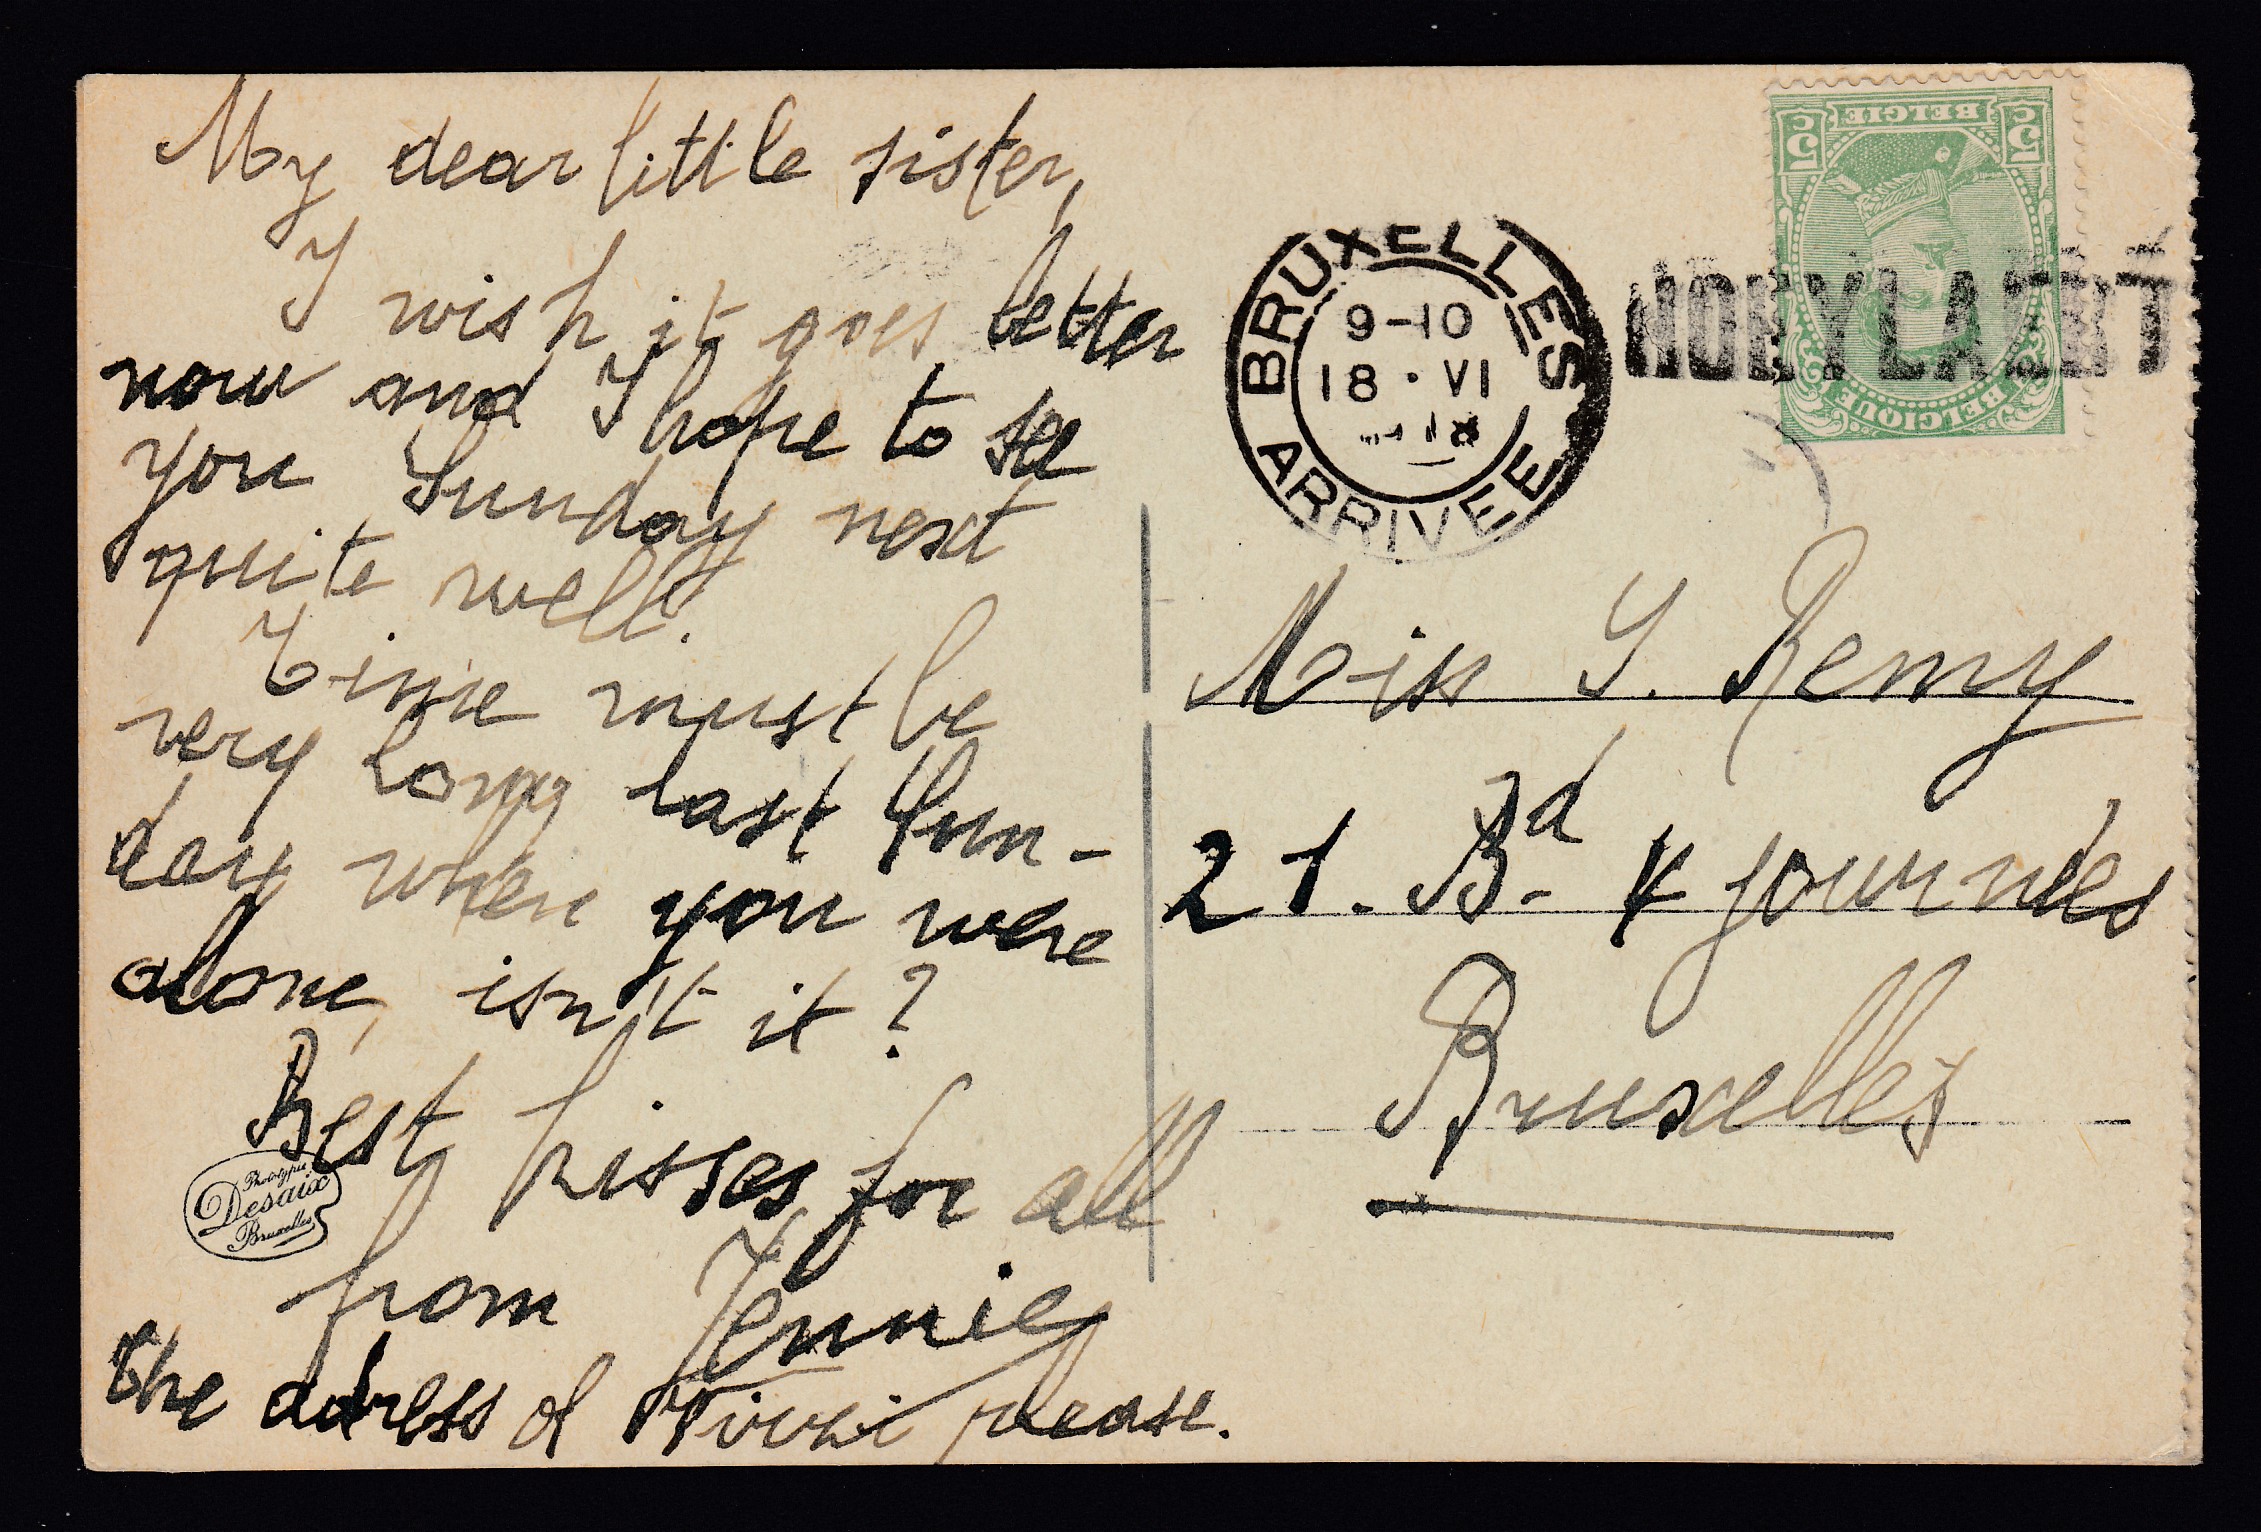 My dear little sister,
I wish it goes better
now and I hope to see
you Sunday next
quite well.
Time must be
very long last Sun-
day when you were
alone, isn't it?
Best kisses for all
from Jennie
the adress of please.
Phototypie
Desaix
Bruxelles
BRUXELLES
9-10
18 · VI
ARRIVEE
5c BELGIE 5c
BELGIQUE
Miss Y. Remy
21. Bd. 4 journées
Bruxelles